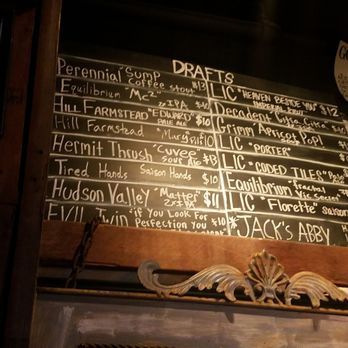 DRAFTS
Perennial "Sump"
coffee stout $13
Equilibrium "Mc²"
2x IPA $10
Hill Farmstead "Edward"
Pale Ale
Hill Farmstead "Mary" pils $10
Hermit Thrush "Cuvee"
sour ale $13
Tired Hands Saison Hands $10
Hudson Valley "Matter"
2x IPA
Evil Twin "if You Look For
Perfection You $10
LIC "Heaven Beside You" $12
Imperial
Decadent
Grimm Apricot Pop!
LIC "Porter"
LIC "Coded Tiles"
Equilibrium Fractal
LIC "Florette" Saison
*Jack's Abby